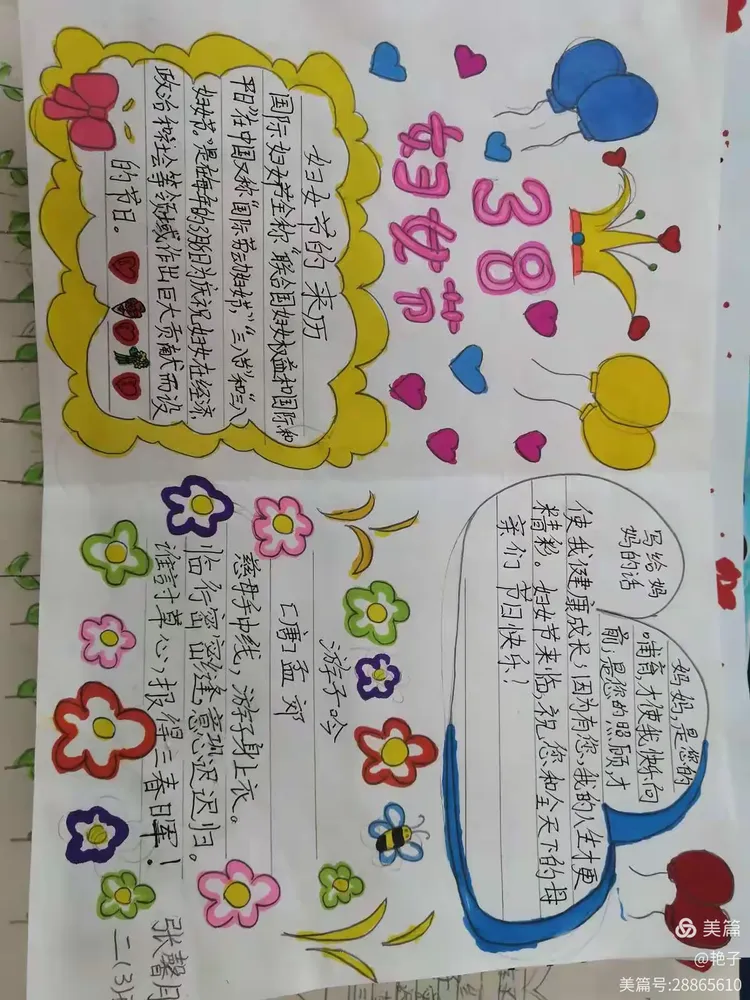 38
妇女节
妇女节的来历
国际妇女节全称“联合国妇女权益和国际和
平日”在中国又称“国际劳动妇女节”、“三八节”和“三八
妇女节”。是在每年的3月8日为庆祝妇女在经济,
政治和社会等领域作出巨大贡献而设
的节日。
写给妈
妈的话
妈妈,是您的
哺育,才使我快乐向
前,是您的照顾,才
使我健康成长,因为有您,我的人生才更
精彩。妇女节来临,祝您和全天下的母
亲们 节日快乐!
游子吟
[唐]孟郊
慈母手中线,游子身上衣。
临行密密缝,意恐迟迟归。
谁討草心,报得三春日晖!
张馨月
二(3)
美篇
@艳子
美篇号:28865610